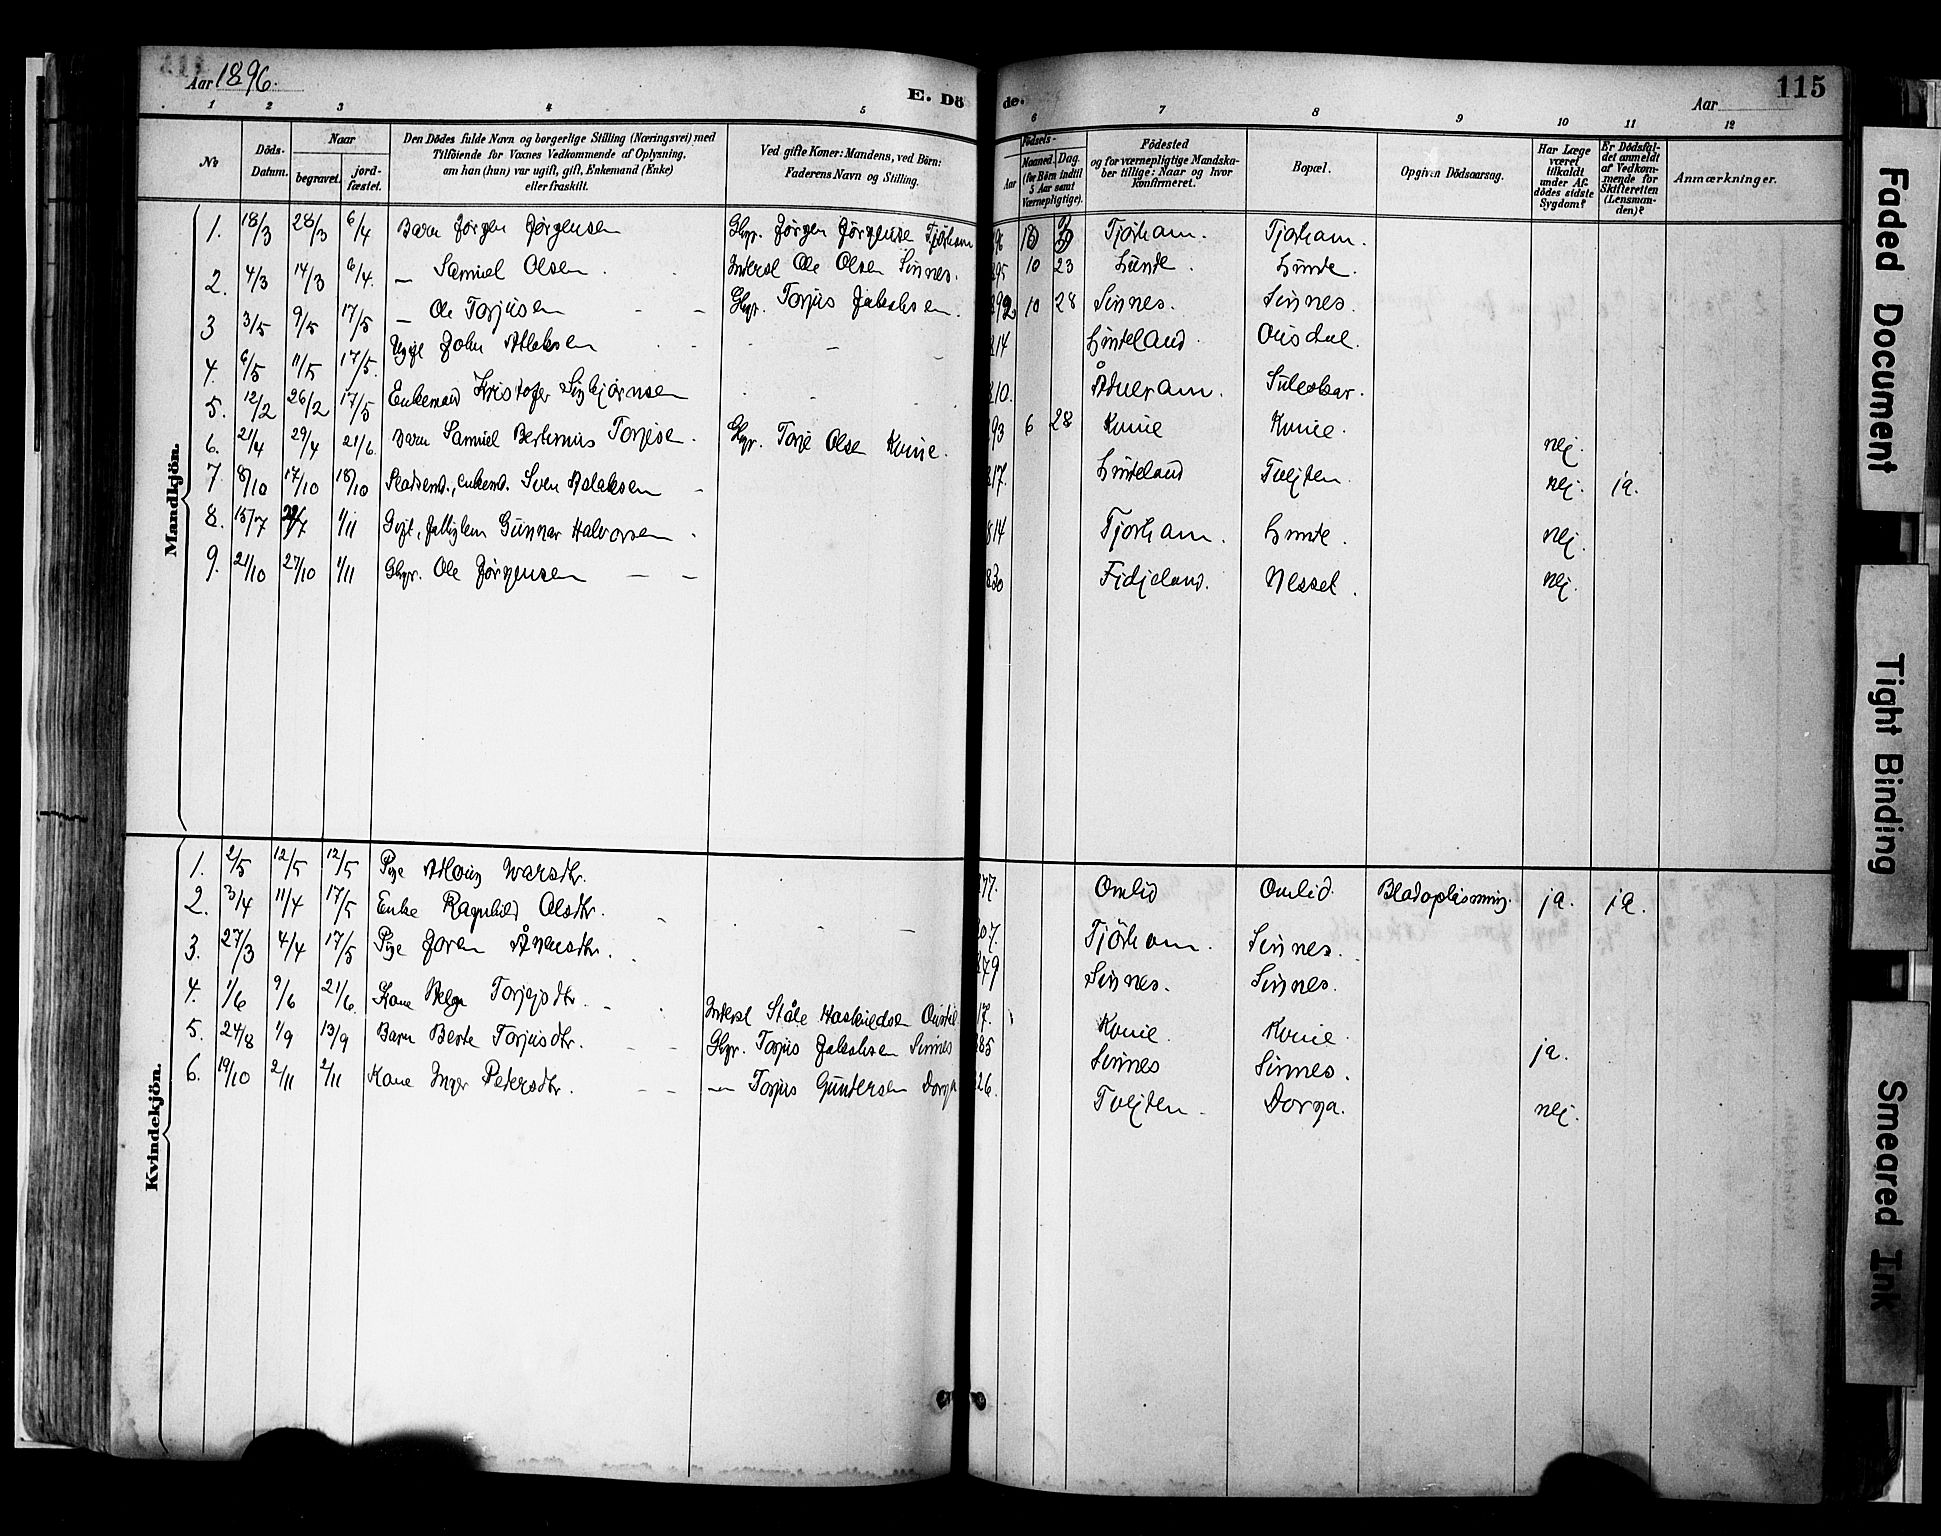 Aar 1896.
E. Dö de.
Aar
115
1 2 3 4 5 6 7 8 9 10 11 12
No
Döds-Datum.
Naar
begravet.
jord-fæstet.
Den Dödes fulde Navn og borgerlige Stilling (Næringsvei) med
Tilföiende for Voxnes Vedkommende af Oplysning,
om han (hun) var ugift, gift, Enkemand (Enke)
eller fraskilt.
Ved gifte Koner: Mandens, ved Börn:
Faderens Navn og Stilling.
Födsels-
Aar
Maaned. Dag.
(for Börn indtil
5 Aar samt
Værnepligtige).
Födested
og for værnepligtige Mandska-
ber tillige: Naar og hvor
konfirmeret.
Bopæl.
Opgiven Dödsaarsag.
Har Læge
været
tilkaldt
under Af-
dödes sidste
Sygdom?
Er Dödsfal-
det anmeldt
af Vedkom-
mende for
Skifteretten
(Lensman-
den)?
Anmærkninger.
Mandkjön.
1. 18/3 28/3 6/4 Barn Jörgen Jörgensen Gbgr. Jörgen Jörgensen Tjörham 96 Tjörham. Tjorham.
2. 4/3 14/3 6/4. — Samuel Olsen. Inderst Ole Olsen Sinnes. 95 10 23 Lunde. Lunde.
3 3/5 9/5 17/5 — Ole Torjusen Gbgr. Torjus Jakobsen. 92 10 28 Sinnes. Sinnes.
4. 6/5 11/5 17/5. John Atlaksen 14 Linteland Ousdal.
5. 12/2 26/2 17/5 Enkemand Kristofer Sigbjörnsen 810. Ådneram. Suleskar.
6. 21/4 29/4 21/6 Barn Samuel Bertinius Torjesen. Gbgr. Torje Olsen Kvinie. 93 6 28 Kvinie Kvinie. nej.
7. 8/10 17/10 18/10 Pladsmd., enkemd. Sven Aslaksen 817. Linteland Tvejten. nej. ja.
8. 15/7 /7 1/11 Gunnar Halvorsen. 814 Tjorham. Lunde. nej.
9. 21/10 27/10 1/11 Gbgr. Ole Jörgensen 830 Fidjeland. Nesset. nej.
Kvindekjön.
1. 2/5 12/5 12/5 Pige Ivarsdtr. 77. Omlid Omlid. Blodoplösning. ja. ja.
2. 3/4 11/4 17/5 Enke Ragnhild Olsdtr. 07. Tjörham. Sinnes.
3. 27/3 4/4 17/5 Pige Joren Ånensdtr. 79 Sinnes. Sinnes.
4. 1/6 9/6 21/6. Kone Helga Torjejsdtr. Inderst Ståle Haskeldsen 17. Kvinie. Kvinie.
5. 24/8 1/9 13/9 Barn Berte Torjusdtr. Gbgr. Torjus Jakobsen Sinnes 85 Sinnes Sinnes. ja.
6. 19/10 2/11 2/11 Kone Inger Petersdtr. — Torjus Guntersen Dorga 26. Tvejten. Dorga. nej.
Faded Document
Tight Binding
Smeared Ink